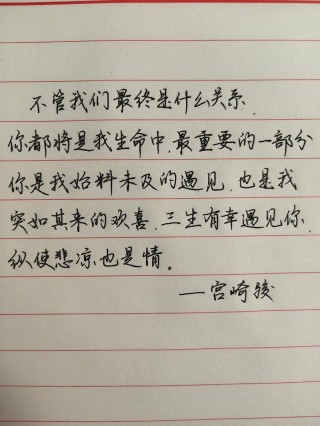 不管我们最终是什么关系.
你都将是我生命中.最重要的一部分
你是我始料未及的遇见.也是我
突如其来的欢喜.三生有幸遇见你.
纵使悲凉也是情.
——宫崎骏